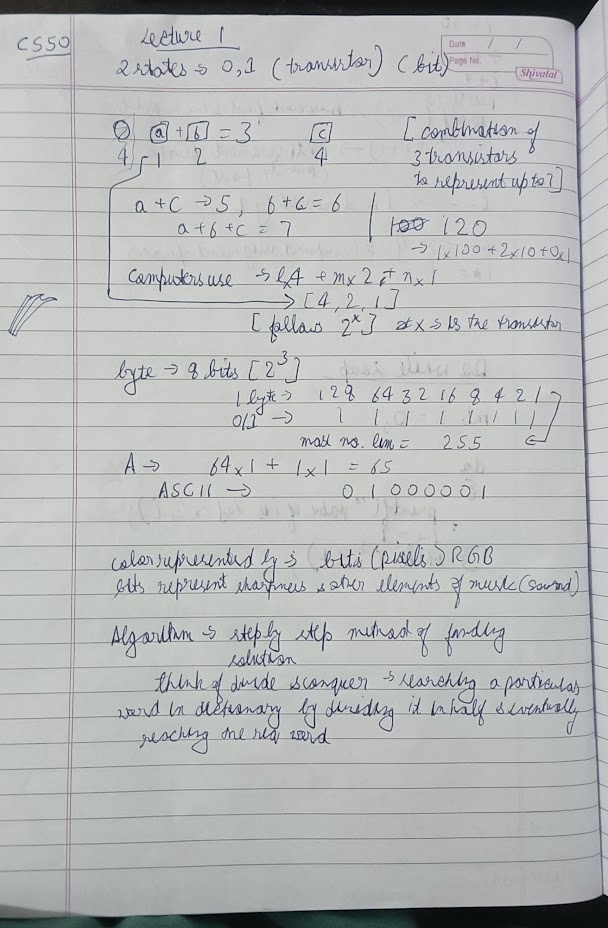 CS50
Lecture 1
Date / /
Page No.
Shivalal
2 states → 0,1 (transistor) (bit)
[a] + [b] = 3 [c] [combination of
4 1 2 4 3 transistors
to represent up to 7]
a + c → 5, b + c = 6
a + b + c = 7
100 120
→ 1x100 + 2x10 + 0x1
Computers use → lx4 + mx2 + nx1
→ [4, 2, 1]
[follows 2^x] x → is the transistor
byte → 8 bits [2^3]
1 byte → 128 64 32 16 8 4 2 1
0/1 → 1 1 1 1 1 1 1 1
max no. lim = 255
A → 64x1 + 1x1 = 65
ASCII → 0 1 000001
color represented by → bits (pixels) RGB
bits represent sharpness & other elements of music (sound)
Algorithm → step by step method of finding
solution
think of divide & conquer → searching a particular
word in dictionary by dividing it in half & eventually
reaching the req word